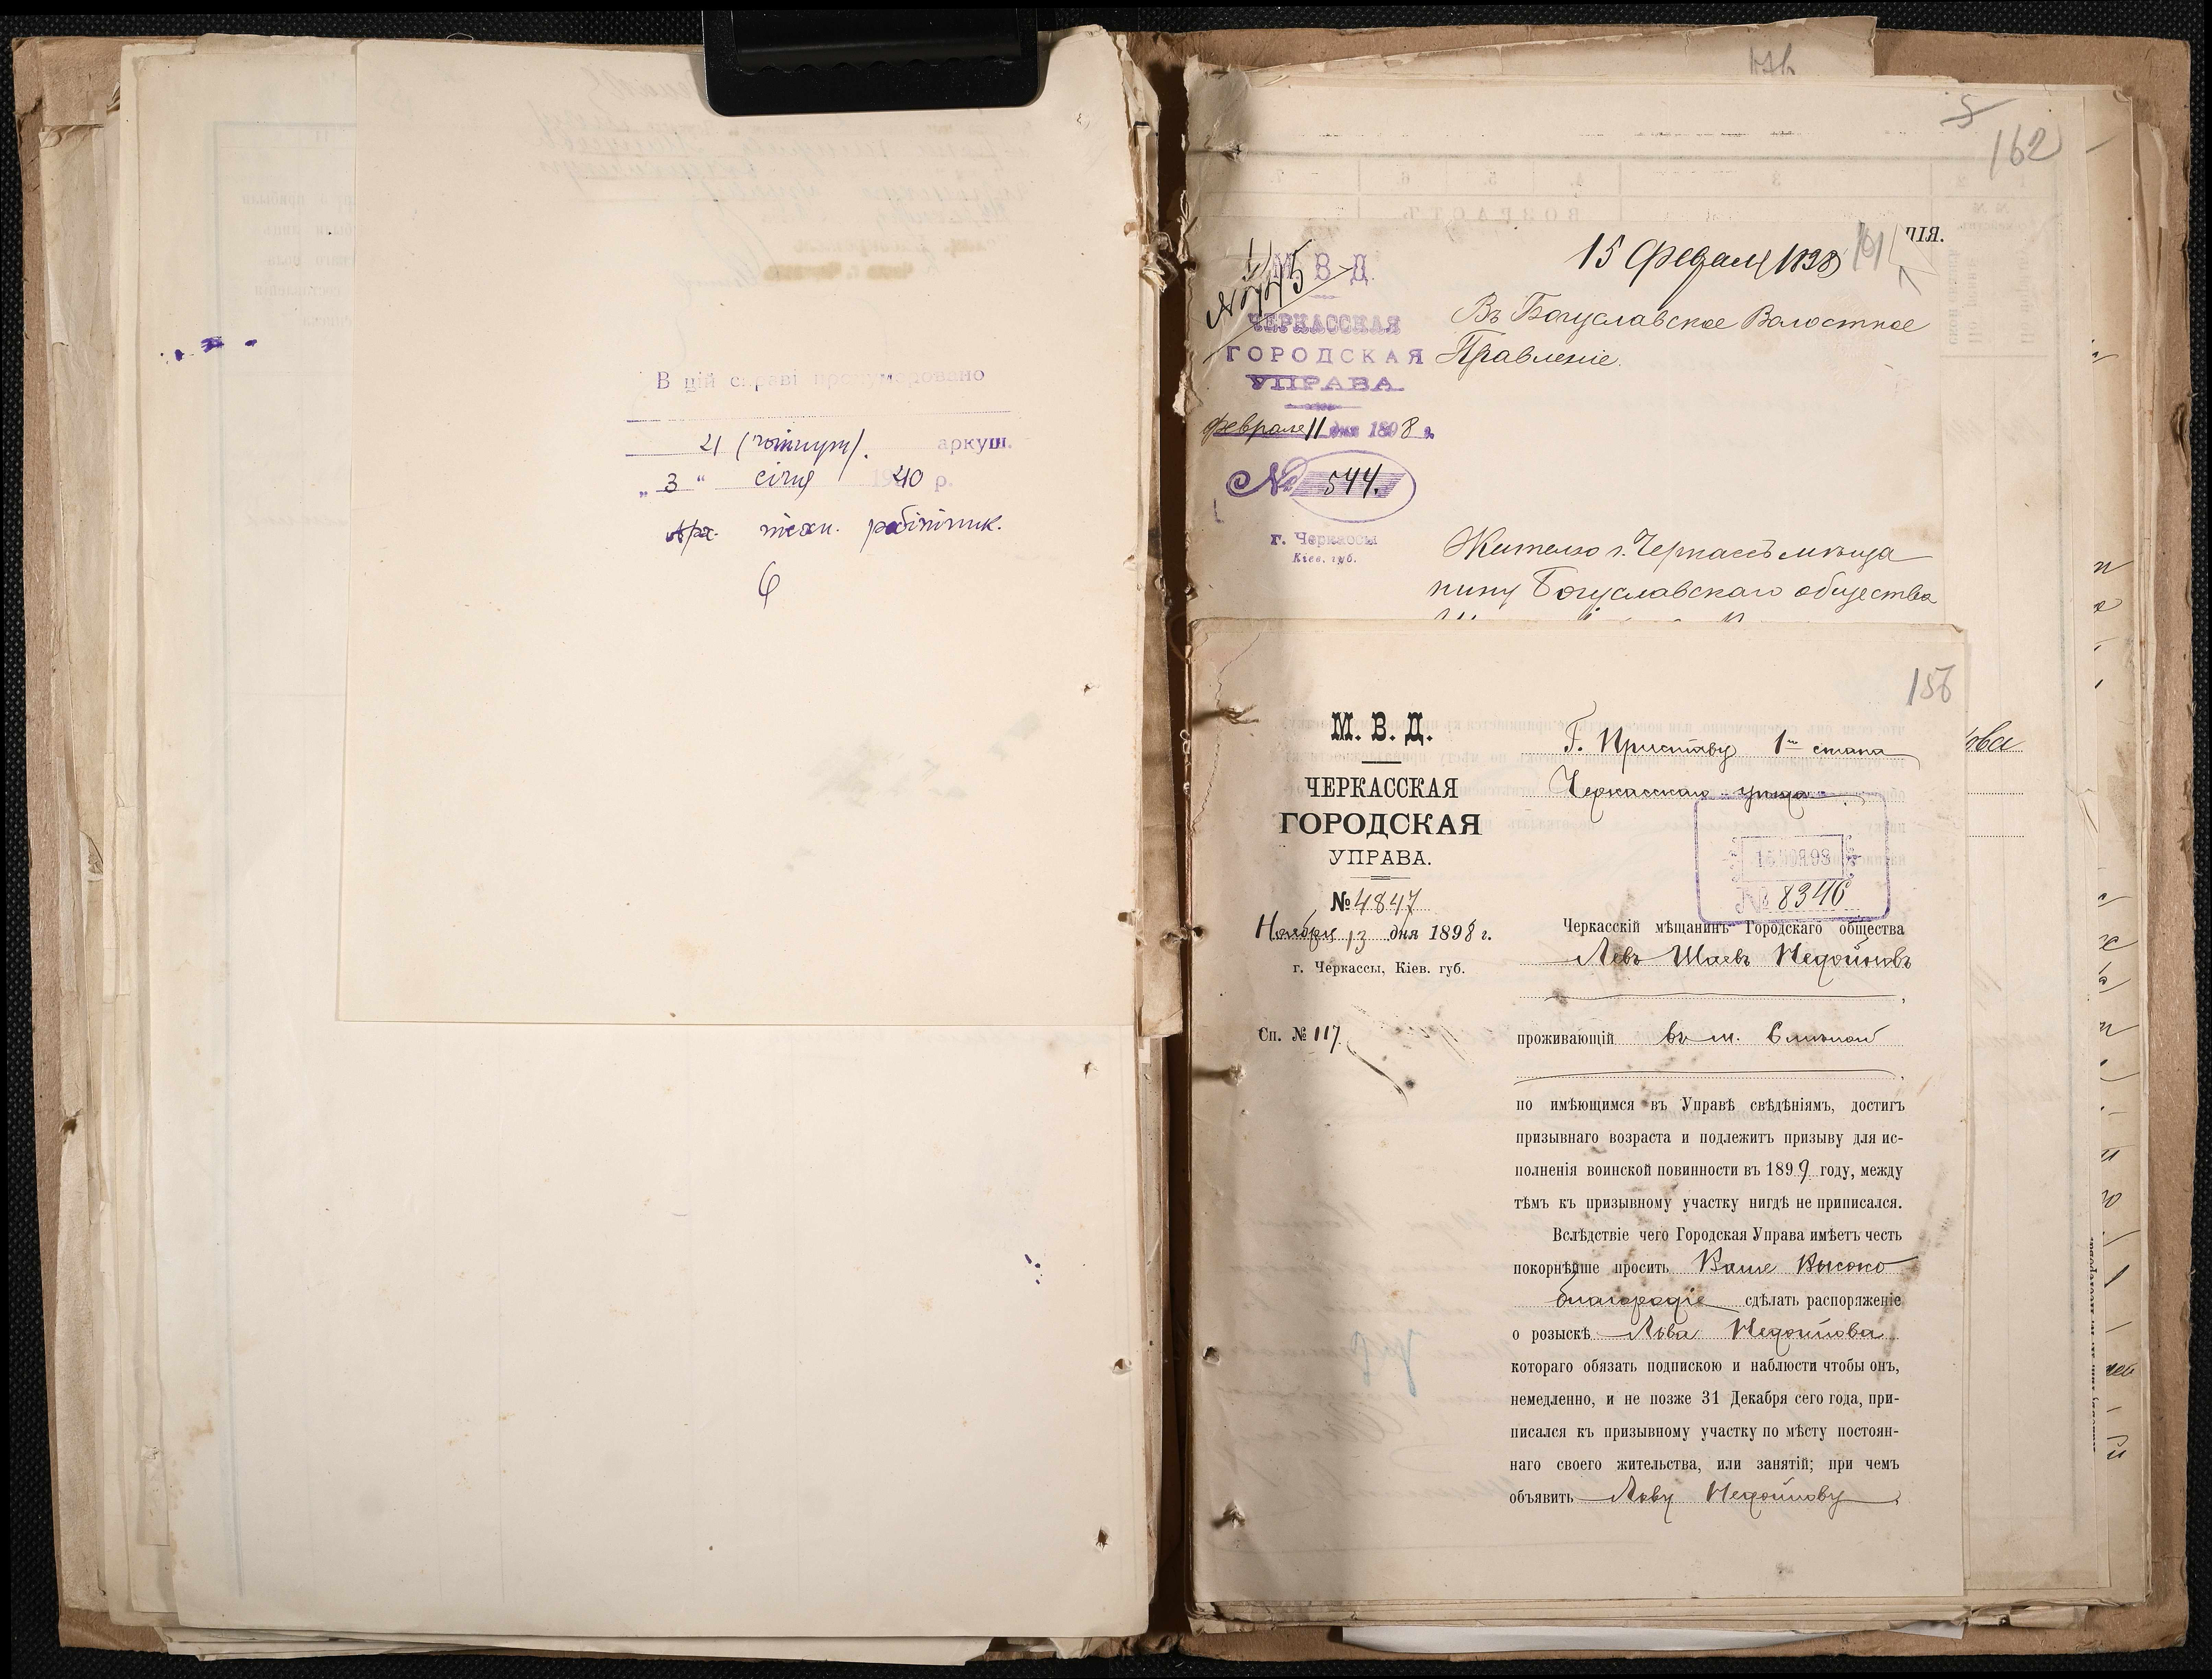 В цій справі пронумеровано
4 (чотири). аркуш.
„ 3 “ січня 1940 р.
Арх. техн. робітник.
162
ція.
15 Феврал 1898
161
№ 745
М. В. Д.
ЧЕРКАССКАЯ
ГОРОДСКАЯ
УПРАВА
Февраля 11 дня 1898 г.
№ 544.
г. Черкассы
Кіев. губ.
Въ Богуславское Волостное
Правленіе.
Жителю г. Черкассъ мѣща
нину Богуславскаго общества
156
М. В. Д.
ЧЕРКАССКАЯ
ГОРОДСКАЯ
УПРАВА.
№ 4847
Ноября 13 дня 1898 г.
г. Черкассы, Кіев. губ.
Сп. № 117
Г. Приставу 1го стана
Черкасскаго уѣзда
15 НОЯ 98
№ 8346
Черкасскій мѣщанинъ Городскаго общества
Левъ Шаевъ Недойновъ
,
проживающій въ м. Смѣлой
,
по имѣющимся въ Управѣ свѣдѣніямъ, достигъ
призывнаго возраста и подлежитъ призыву для ис-
полненія воинской повинности въ 1899 году, между
тѣмъ къ призывному участку нигдѣ не приписался.
Вслѣдствіе чего Городская Управа имѣетъ честь
покорнѣйше просить Ваше Высоко
благородіе сдѣлать распоряженіе
о розыскѣ Льва Недойнова
котораго обязать подпискою и наблюсти чтобы онъ,
немедленно, и не позже 31 Декабря сего года, при-
писался къ призывному участку по мѣсту постоян-
наго своего жительства, или занятій; при чемъ
объявить Льву Недойнову,